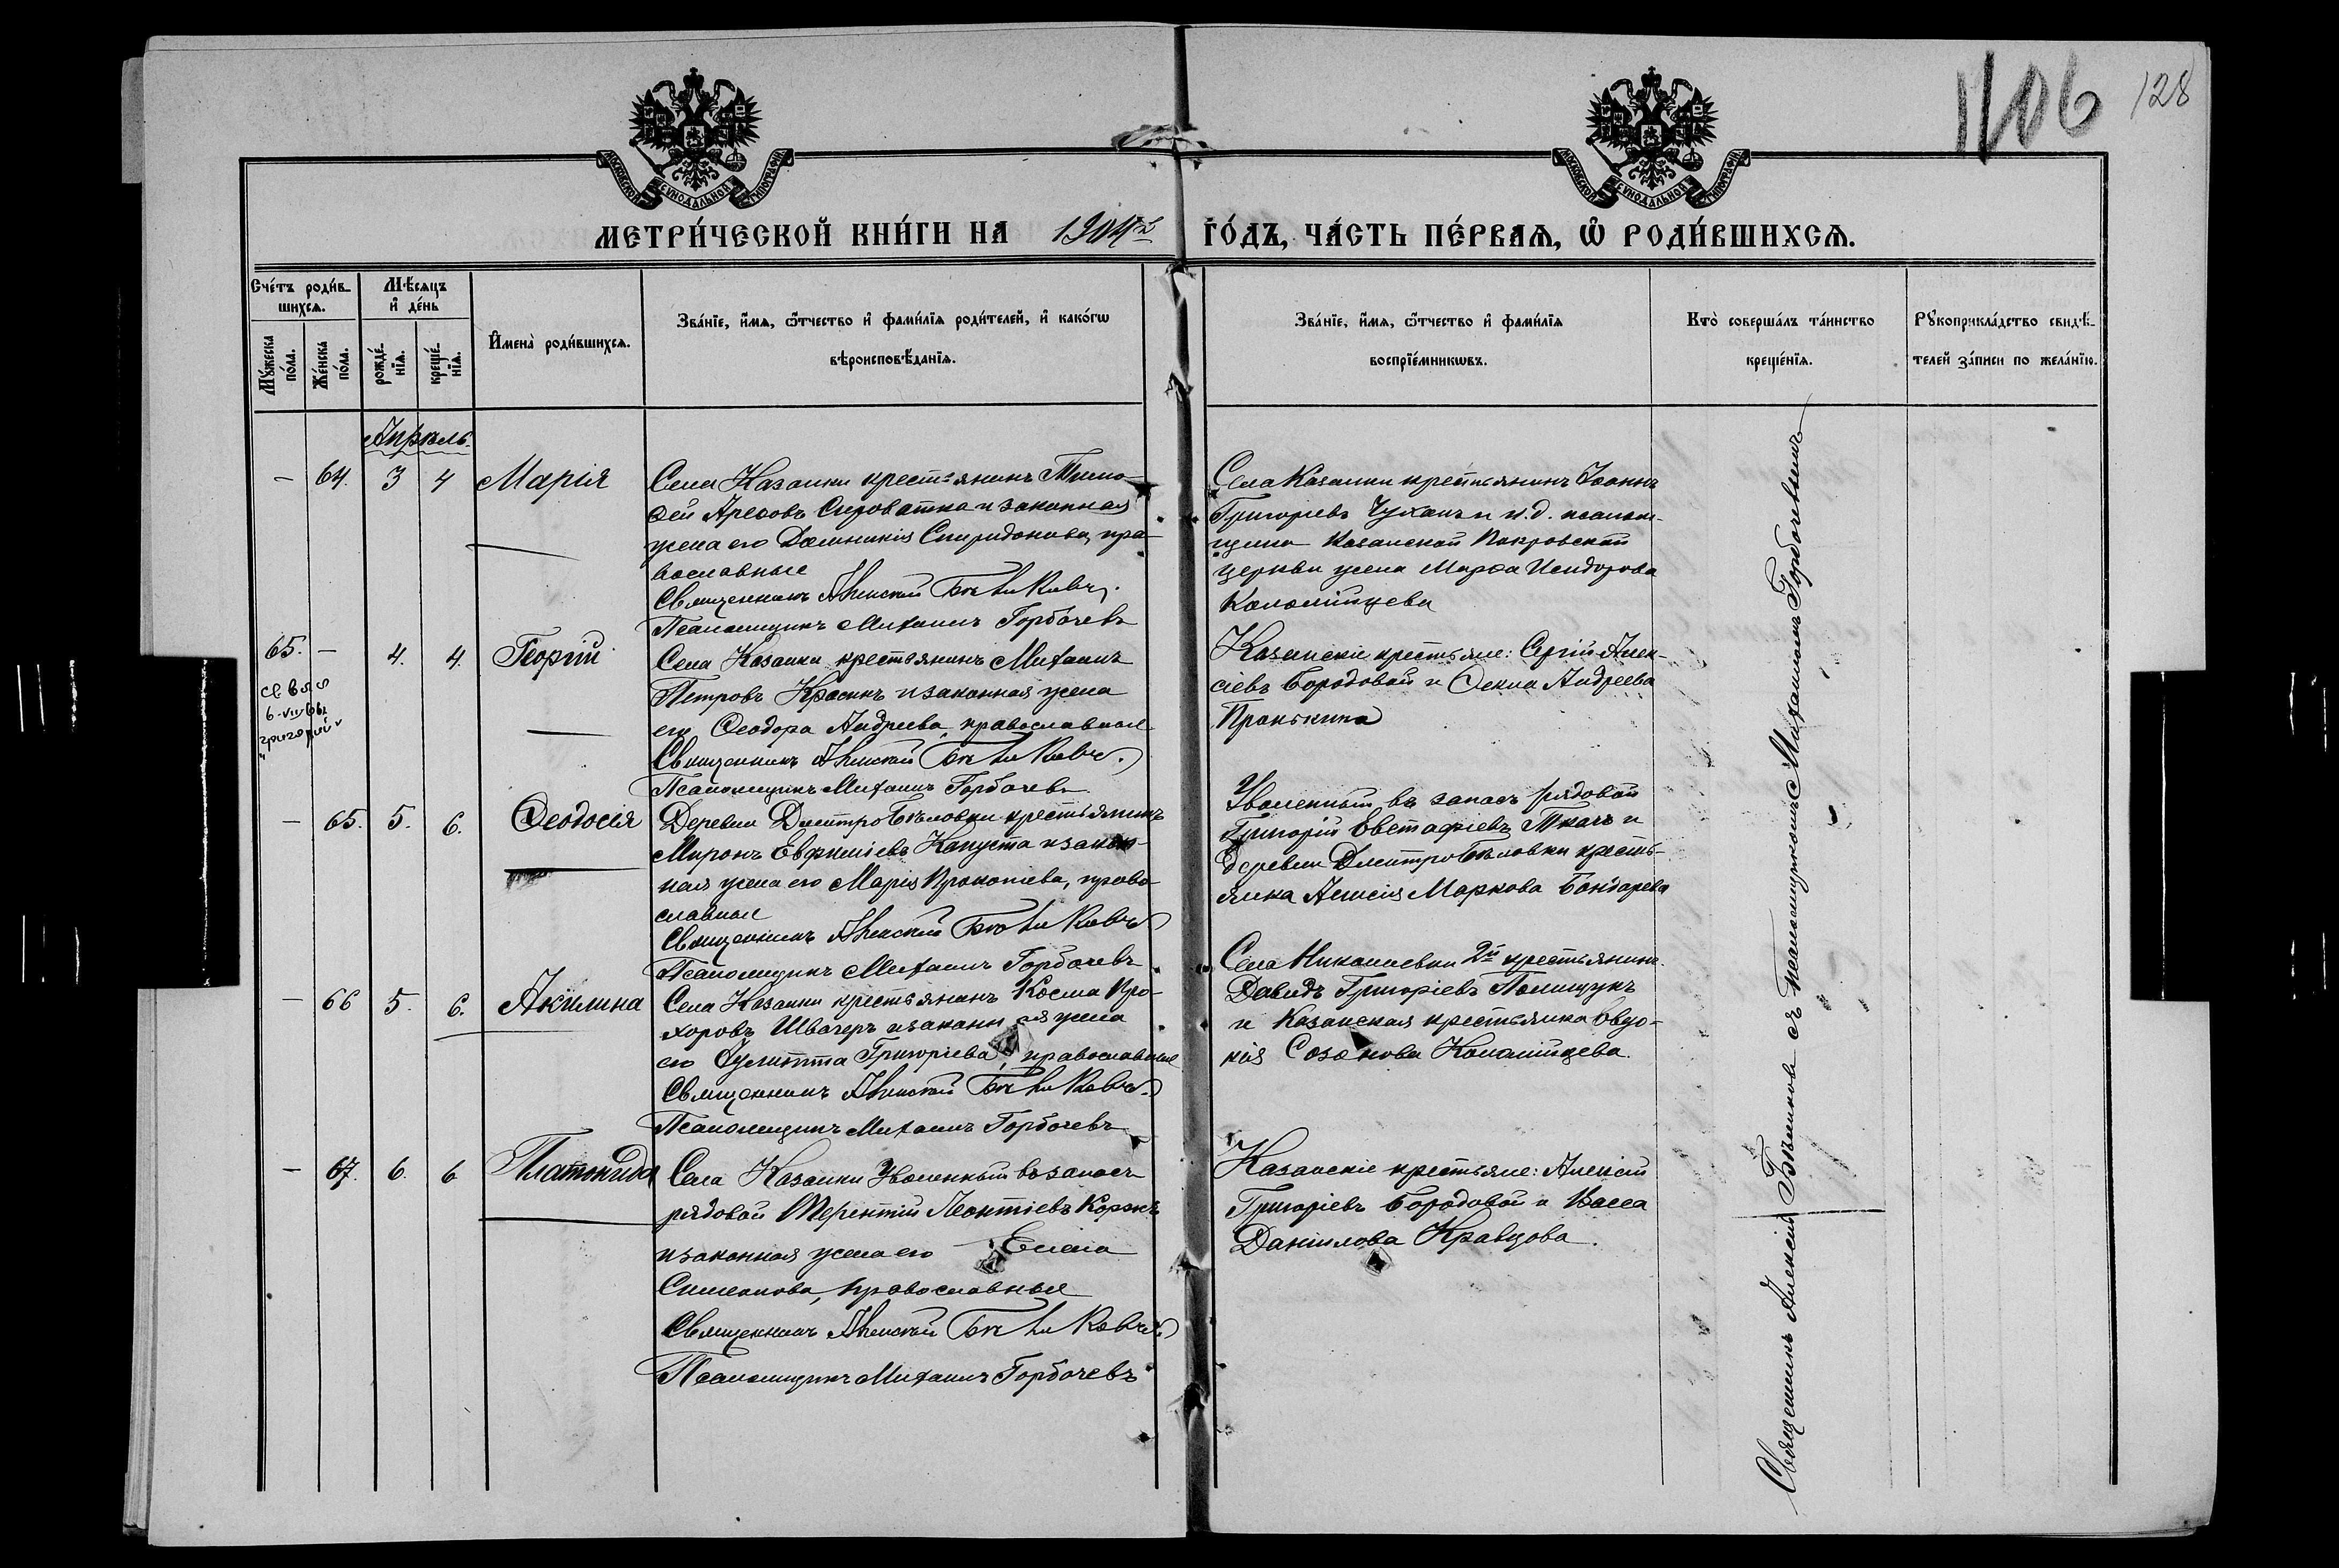 1106 128
МОСКОВСКОЙ СѴНОДАЛЬНОЙ ТИПОГРАФІИ
МОСКОВСКОЙ СѴНОДАЛЬНОЙ ТИПОГРАФІИ
МЕТРИ́ЧЕСКОЙ КНИ́ГИ НА 1904й ГО́ДЪ, ЧА́СТЬ ПЕ́РВАѦ, Ѡ҃ РОДИ́ВШИХСѦ.
Сче́тъ роди́в-
шихсѧ.
Мꙋ́жеска по́ла.
Же́нска по́ла.
Мѣ́сѧцъ и҆ де́нь
рожде́-нїѧ.
креще́-нїѧ.
И҆мена̀ роди́вшихсѧ.
Зва́нїе, и҆́мѧ, ѻ҆́тчество и҆ фами́лїѧ роди́телей, и҆ како́гѡ
вѣроисповѣ́данїѧ.
Зва́нїе, и҆́мѧ, ѻ҆́тчество и҆ фами́лїѧ
воспрїе́мникѡвъ.
Кто̀ соверша́лъ та́инство
креще́нїѧ.
Рꙋкоприкла́дство свидѣ́-
телей за́писи по жела́нїю.
Апрѣль.
– 64. 3 4 Марія
Села Казанки крестьянинъ Тимо-
ѳей Ареѳовъ Сыроватка и законная
жена его Домникія Спиридонова, пра-
вославные
Священникъ Алексій Бѣликовъ.
Псаломщикъ Михаилъ Горбачевъ
Села Казанки крестьянинъ Іоаннъ
Григорьевъ Чуханъ и и.д. псалом-
щика Казанской Покровской
церкви жена Марѳа Исидорова
Коломійцева
65. – 4. 4. Георгій
6-VII-66
григорий
Села Казанки крестьянинъ Михаилъ
Петровъ Красинъ и законная жена
его Ѳеодора Андреева, православные
Священникъ Алексій Бѣликовъ.
Псаломщикъ Михаилъ Горбачевъ
Казанскіе крестьяне: Сергій Алек-
сіевъ Бородовой и Ѳекла Андреева
Пронькина
– 65. 5. 6. Ѳеодосія
Деревни ДмитроБѣловки крестьянинъ
Миронъ Евфиміевъ Капуста и закон-
ная жена его Марія Прокопіева, право-
славные
Священникъ Алексій Бѣликовъ
Псаломщикъ Михаилъ Горбачевъ
Уволенный въ запасъ рядовой
Григорій Евстафіевъ Ткачъ и
деревни ДмитроБѣловки кресть-
янка Агнесія Маркова Бондарева
– 66 5. 6. Акилина
Села Казанки крестьянинъ Косма Про-
хоровъ Швачеръ и законная жена
его Іулитта Григоріева, православные
Священникъ Алексій Бѣликовъ.
Псаломщикъ Михаилъ Горбачевъ
Села Николаевки 2й крестьянинъ
Давидъ Григоріевъ Полищукъ
и Казанская крестьянка Евдо-
кія Созонова Коломійцева.
– 67. 6. 6 Платонида
Села Казанки Уволенный въ запасъ
рядовой Терентій Леонтіевъ Коржъ
и законная жена его Елена
Симеонова, православные
Священникъ Алексій Бѣликовъ.
Псаломщикъ Михаилъ Горбачевъ
Казанскіе крестьяне: Алексій
Григоріевъ Бородовой и Васса
Даніилова Кравцова.
Священникъ Алексій Бѣликовъ съ псаломщикомъ Михаиломъ Горбачевымъ